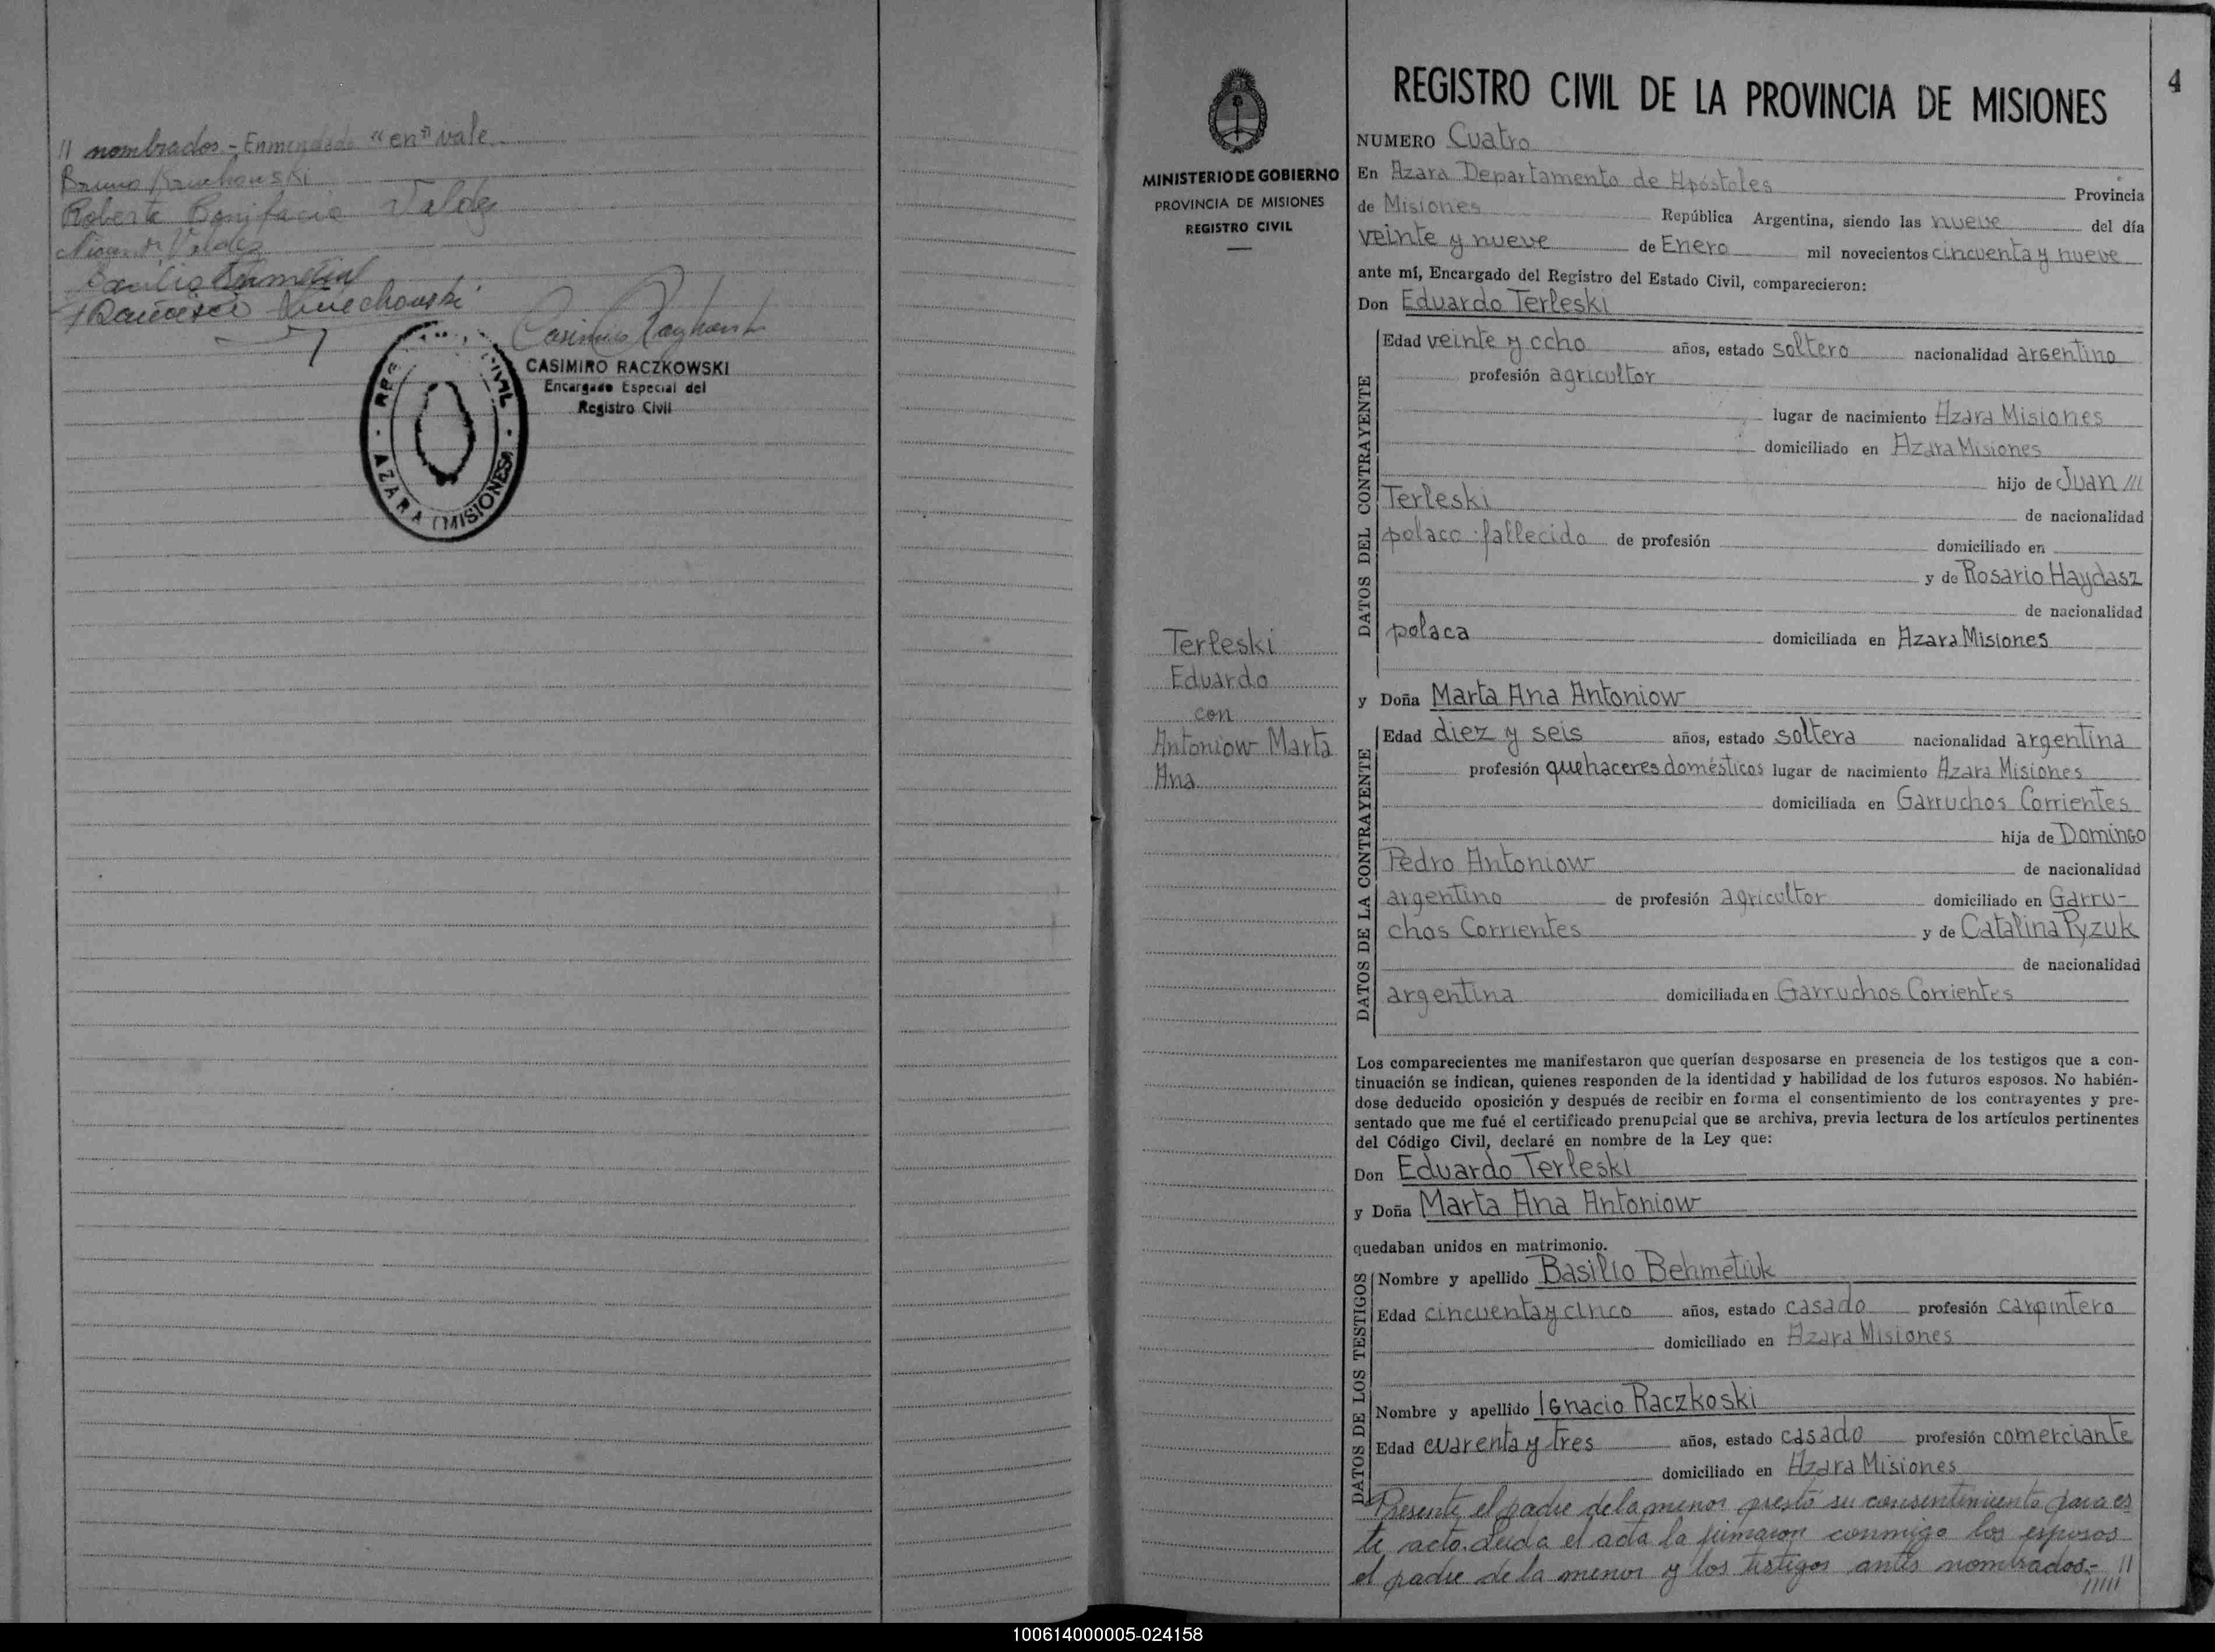 // nombrados - Enmendado "en" vale
Bruno Kruchowski
Roberto Bonifacio Valdez
Valdez
Basilio
Kruchowski
CASIMIRO RACZKOWSKI
Encargado Especial del
Registro Civil
AZARA (MISIONES)
MINISTERIO DE GOBIERNO
PROVINCIA DE MISIONES
REGISTRO CIVIL
Terleski
Eduardo
con
Antoniow Marta
Ana
4
REGISTRO CIVIL DE LA PROVINCIA DE MISIONES
NUMERO Cuatro
En Azara Departamento de Apóstoles Provincia
de Misiones República Argentina, siendo las nueve del día
veinte y nueve de Enero mil novecientos cincuenta y nueve
ante mí, Encargado del Registro del Estado Civil, comparecieron:
Don Eduardo Terleski
DATOS DEL CONTRAYENTE
Edad veinte y ocho años, estado soltero nacionalidad argentino
profesión agricultor
lugar de nacimiento Azara Misiones
domiciliado en Azara Misiones
hijo de Juan ///
Terleski
de nacionalidad
polaco fallecido de profesión domiciliado en
y de Rosario Haydasz
de nacionalidad
polaca domiciliada en Azara Misiones
y Doña Marta Ana Antoniow
DATOS DE LA CONTRAYENTE
Edad diez y seis años, estado soltera nacionalidad argentina
profesión quehaceres domésticos lugar de nacimiento Azara Misiones
domiciliada en Garruchos Corrientes
hija de Domingo
Pedro Antoniow
de nacionalidad
argentino de profesión agricultor domiciliado en Garru-
chos Corrientes y de Catalina Pyzuk
de nacionalidad
argentina domiciliada en Garruchos Corrientes
Los comparecientes me manifestaron que querían desposarse en presencia de los testigos que a con-
tinuación se indican, quienes responden de la identidad y habilidad de los futuros esposos. No habién-
dose deducido oposición y después de recibir en forma el consentimiento de los contrayentes y pre-
sentado que me fué el certificado prenupcial que se archiva, previa lectura de los artículos pertinentes
del Código Civil, declaré en nombre de la Ley que:
Don Eduardo Terleski
y Doña Marta Ana Antoniow
quedaban unidos en matrimonio.
DATOS DE LOS TESTIGOS
Nombre y apellido Basilio Behmetiuk
Edad cincuenta y cinco años, estado casado profesión carpintero
domiciliado en Azara Misiones
Nombre y apellido Ignacio Raczkoski
Edad cuarenta y tres años, estado casado profesión comerciante
domiciliado en Azara Misiones
Presente el padre de la menor prestó su consentimiento para es
te acto. Leida el acta la firmaron conmigo los esposos
el padre de la menor y los testigos antes nombrados.- //
/////
100614000005-024158